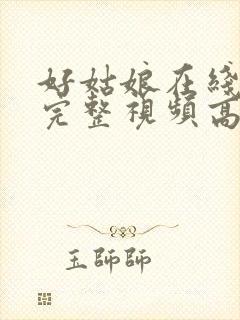 好姑娘在綫
完整視頻高
玉師師